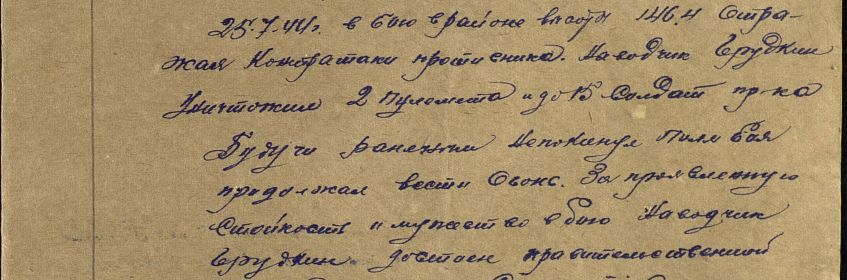 25.7.44г. в бою в районе высоты 146.4 Отра-
жая Контратаки противника. Наводчик Ерудкин
Уничтожил 2 Пулемета и до 15 Солдат пр-ка
Будучи раненым Непокинул Поле боя
продолжал вести Огонь. За проявленную
Стойкость и мужество в бою Наводчик
Ерудкин достоен правительственной